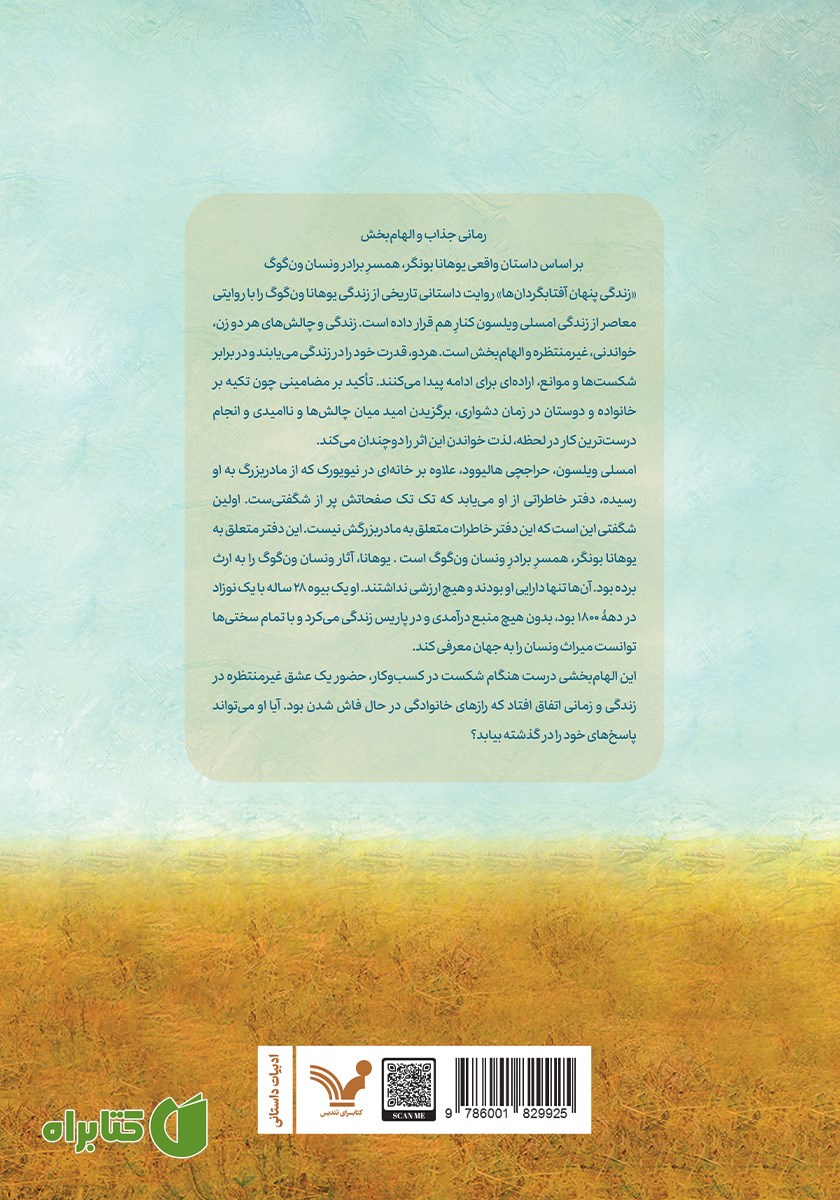 رمانی جذاب و الهام‌بخش
بر اساس داستان واقعی یوهانا بونگر، همسرِ برادر ونسان ون‌گوگ
«زندگی پنهان آفتابگردان‌ها» روایت داستانی تاریخی از زندگی یوهانا ون‌گوگ را با روایتی
معاصر از زندگی امسلی ویلسون کنارِ هم قرار داده است. زندگی و چالش‌های هر دو زن،
خواندنی، غیرمنتظره و الهام‌بخش است. هردو، قدرت خود را در زندگی می‌یابند و در برابر
شکست‌ها و موانع، اراده‌ای برای ادامه پیدا می‌کنند. تأکید بر مضامینی چون تکیه بر
خانواده و دوستان در زمان دشواری، برگزیدن امید میان چالش‌ها و ناامیدی و انجام
درست‌ترین کار در لحظه، لذت خواندن این اثر را دوچندان می‌کند.
امسلی ویلسون، حراجچی هالیوود، علاوه بر خانه‌ای در نیویورک که از مادربزرگ به او
رسیده، دفتر خاطراتی از او می‌یابد که تک تک صفحاتش پر از شگفتی‌ست. اولین
شگفتی این است که این دفتر خاطرات متعلق به مادربزرگش نیست. این دفتر متعلق به
یوهانا بونگر، همسرِ برادرِ ونسان ون‌گوگ است . یوهانا، آثار ونسان ون‌گوگ را به ارث
برده بود. آن‌ها تنها دارایی او بودند و هیچ ارزشی نداشتند. او یک بیوه ۲۸ ساله با یک نوزاد
در دههٔ ۱۸۰۰ بود، بدون هیچ منبع درآمدی و در پاریس زندگی می‌کرد و با تمام سختی‌ها
توانست میراث ونسان را به جهان معرفی کند.
این الهام‌بخشی درست هنگام شکست در کسب‌وکار، حضور یک عشق غیرمنتظره در
زندگی و زمانی اتفاق افتاد که رازهای خانوادگی در حال فاش شدن بود. آیا او می‌تواند
پاسخ‌های خود را در گذشته بیابد؟
ادبیات داستانی
کتابسرای تندیس
SCAN ME
9 786001 829925
کتابراه